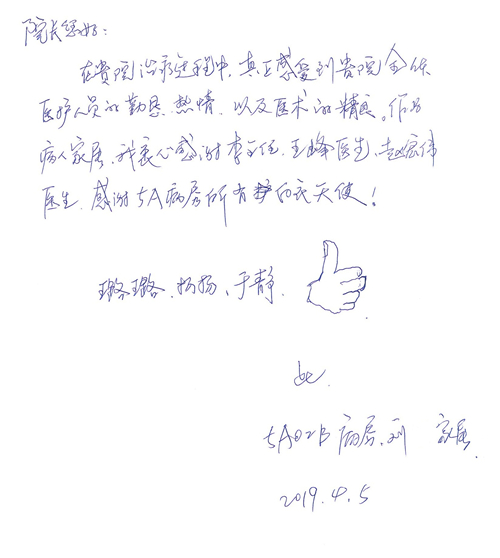 院长您好:
在贵院治疗过程中,真正感受到贵院全体
医护人员的勤恳、热情,以及医术的精良。作为
病人家属,我衷心感谢李主任、王峰医生、赵宏伟
医生,感谢5A病房所有的白衣天使!
璐璐、杨扬、于静.
5A02B病房,刘 家属.
2019.4.5